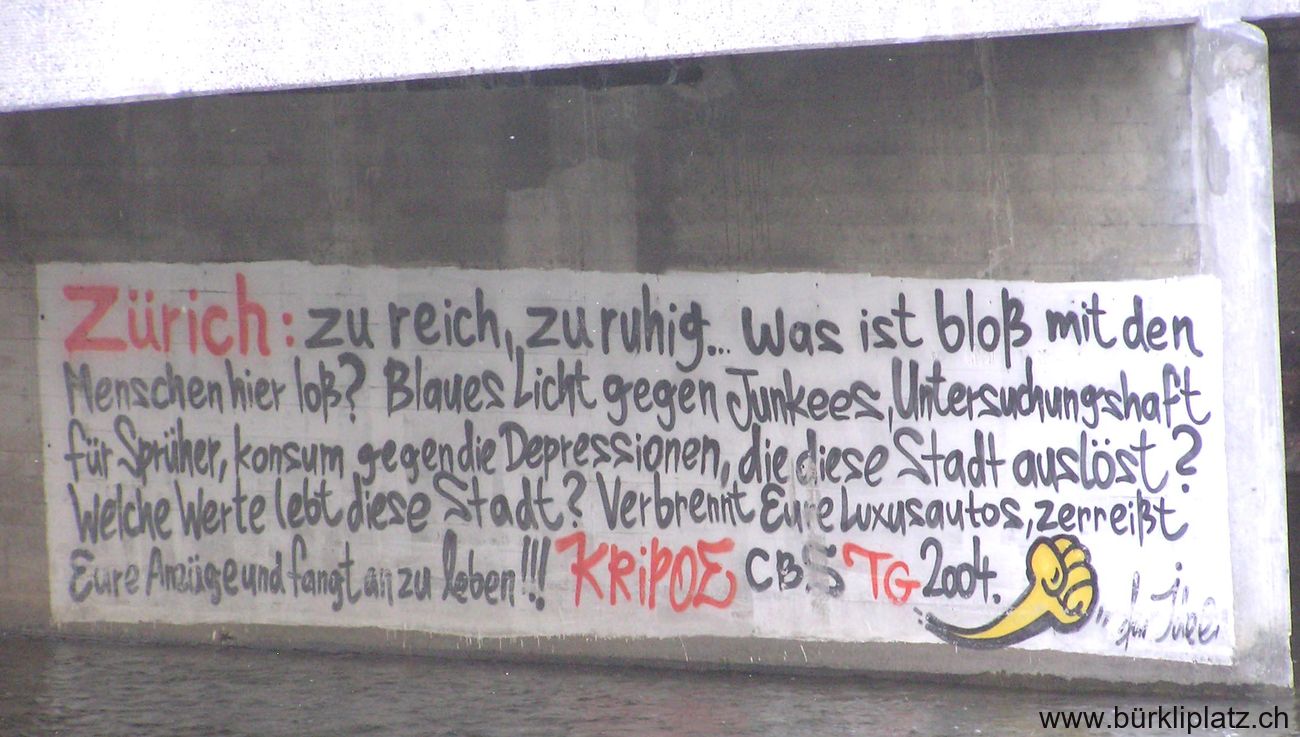 Zürich: zu reich, zu ruhig... Was ist bloß mit den
Menschen hier loß? Blaues Licht gegen Junkees, Untersuchungshaft
für Sprüher, konsum gegen die Depressionen, die diese Stadt auslöst?
Welche Werte lebt diese Stadt? Verbrennt Eure Luxusautos, zerreißt
Eure Anzüge und fangt an zu leben!!! KRiPOE CBS TG 2004.
www.bürkliplatz.ch